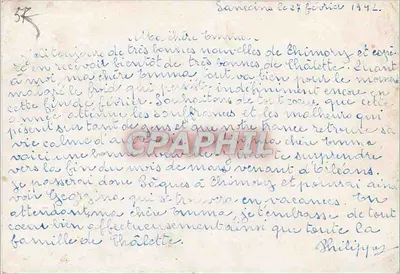 37
le 27 février 194
Ma chère Emma.
J'ai toujours de très bonnes nouvelles de Thimory et espè
en recevoir bientôt de très bonnes de Châlette. Quant
à moi, ma chère Emma, tout va bien pour le moment
malgré le froid qui persiste indéfiniment encore en
cette fin de février. Souhaitons de tout coeur que cette
année atténue les souffrances et les malheurs qui
pèsent sur tant de gens et que notre France retrouve sa
vie calme d ma chère Emma
voici une bonne CPAPHIL te surprendre
vers la fin du mois de mars venant d'Orléans.
Je passerai donc Pâques à Thimory et pourrai ainsi
voir Georgina qui se trouvera en vacances. En
attendant, ma chère Emma, je t'embrasse de tout
coeur bien affectueusement ainsi que toute la
famille de Châlette.
Philippe